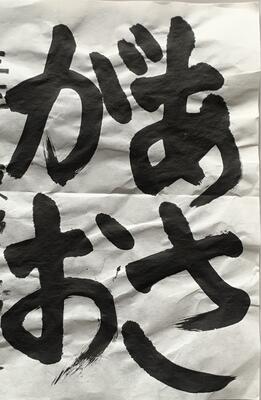 あさ
がお